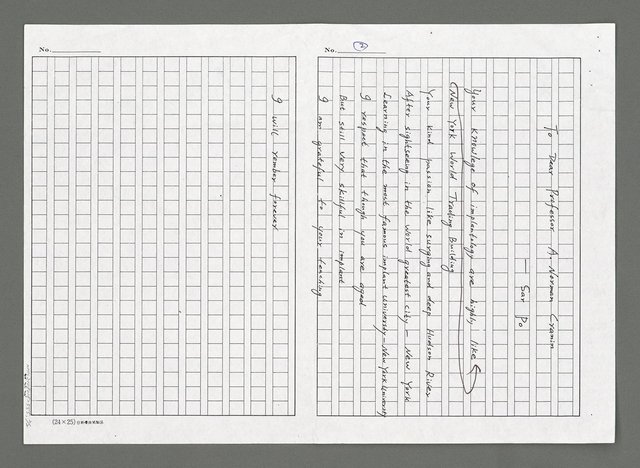 No. 2
To Dear Professor A. Norman Cranin
— San Po
Your Knowlege of implantology are highly like
New York World Trading Building
Your kind passion like surging and deep Hudson River
After sightseeing in the world greatest city — New York
Learning in the most famous implant university — New York University
I respect that though you are aged
But still very skillful in implant
I am grateful to your teaching
No.
I will rember forever
(24×25)